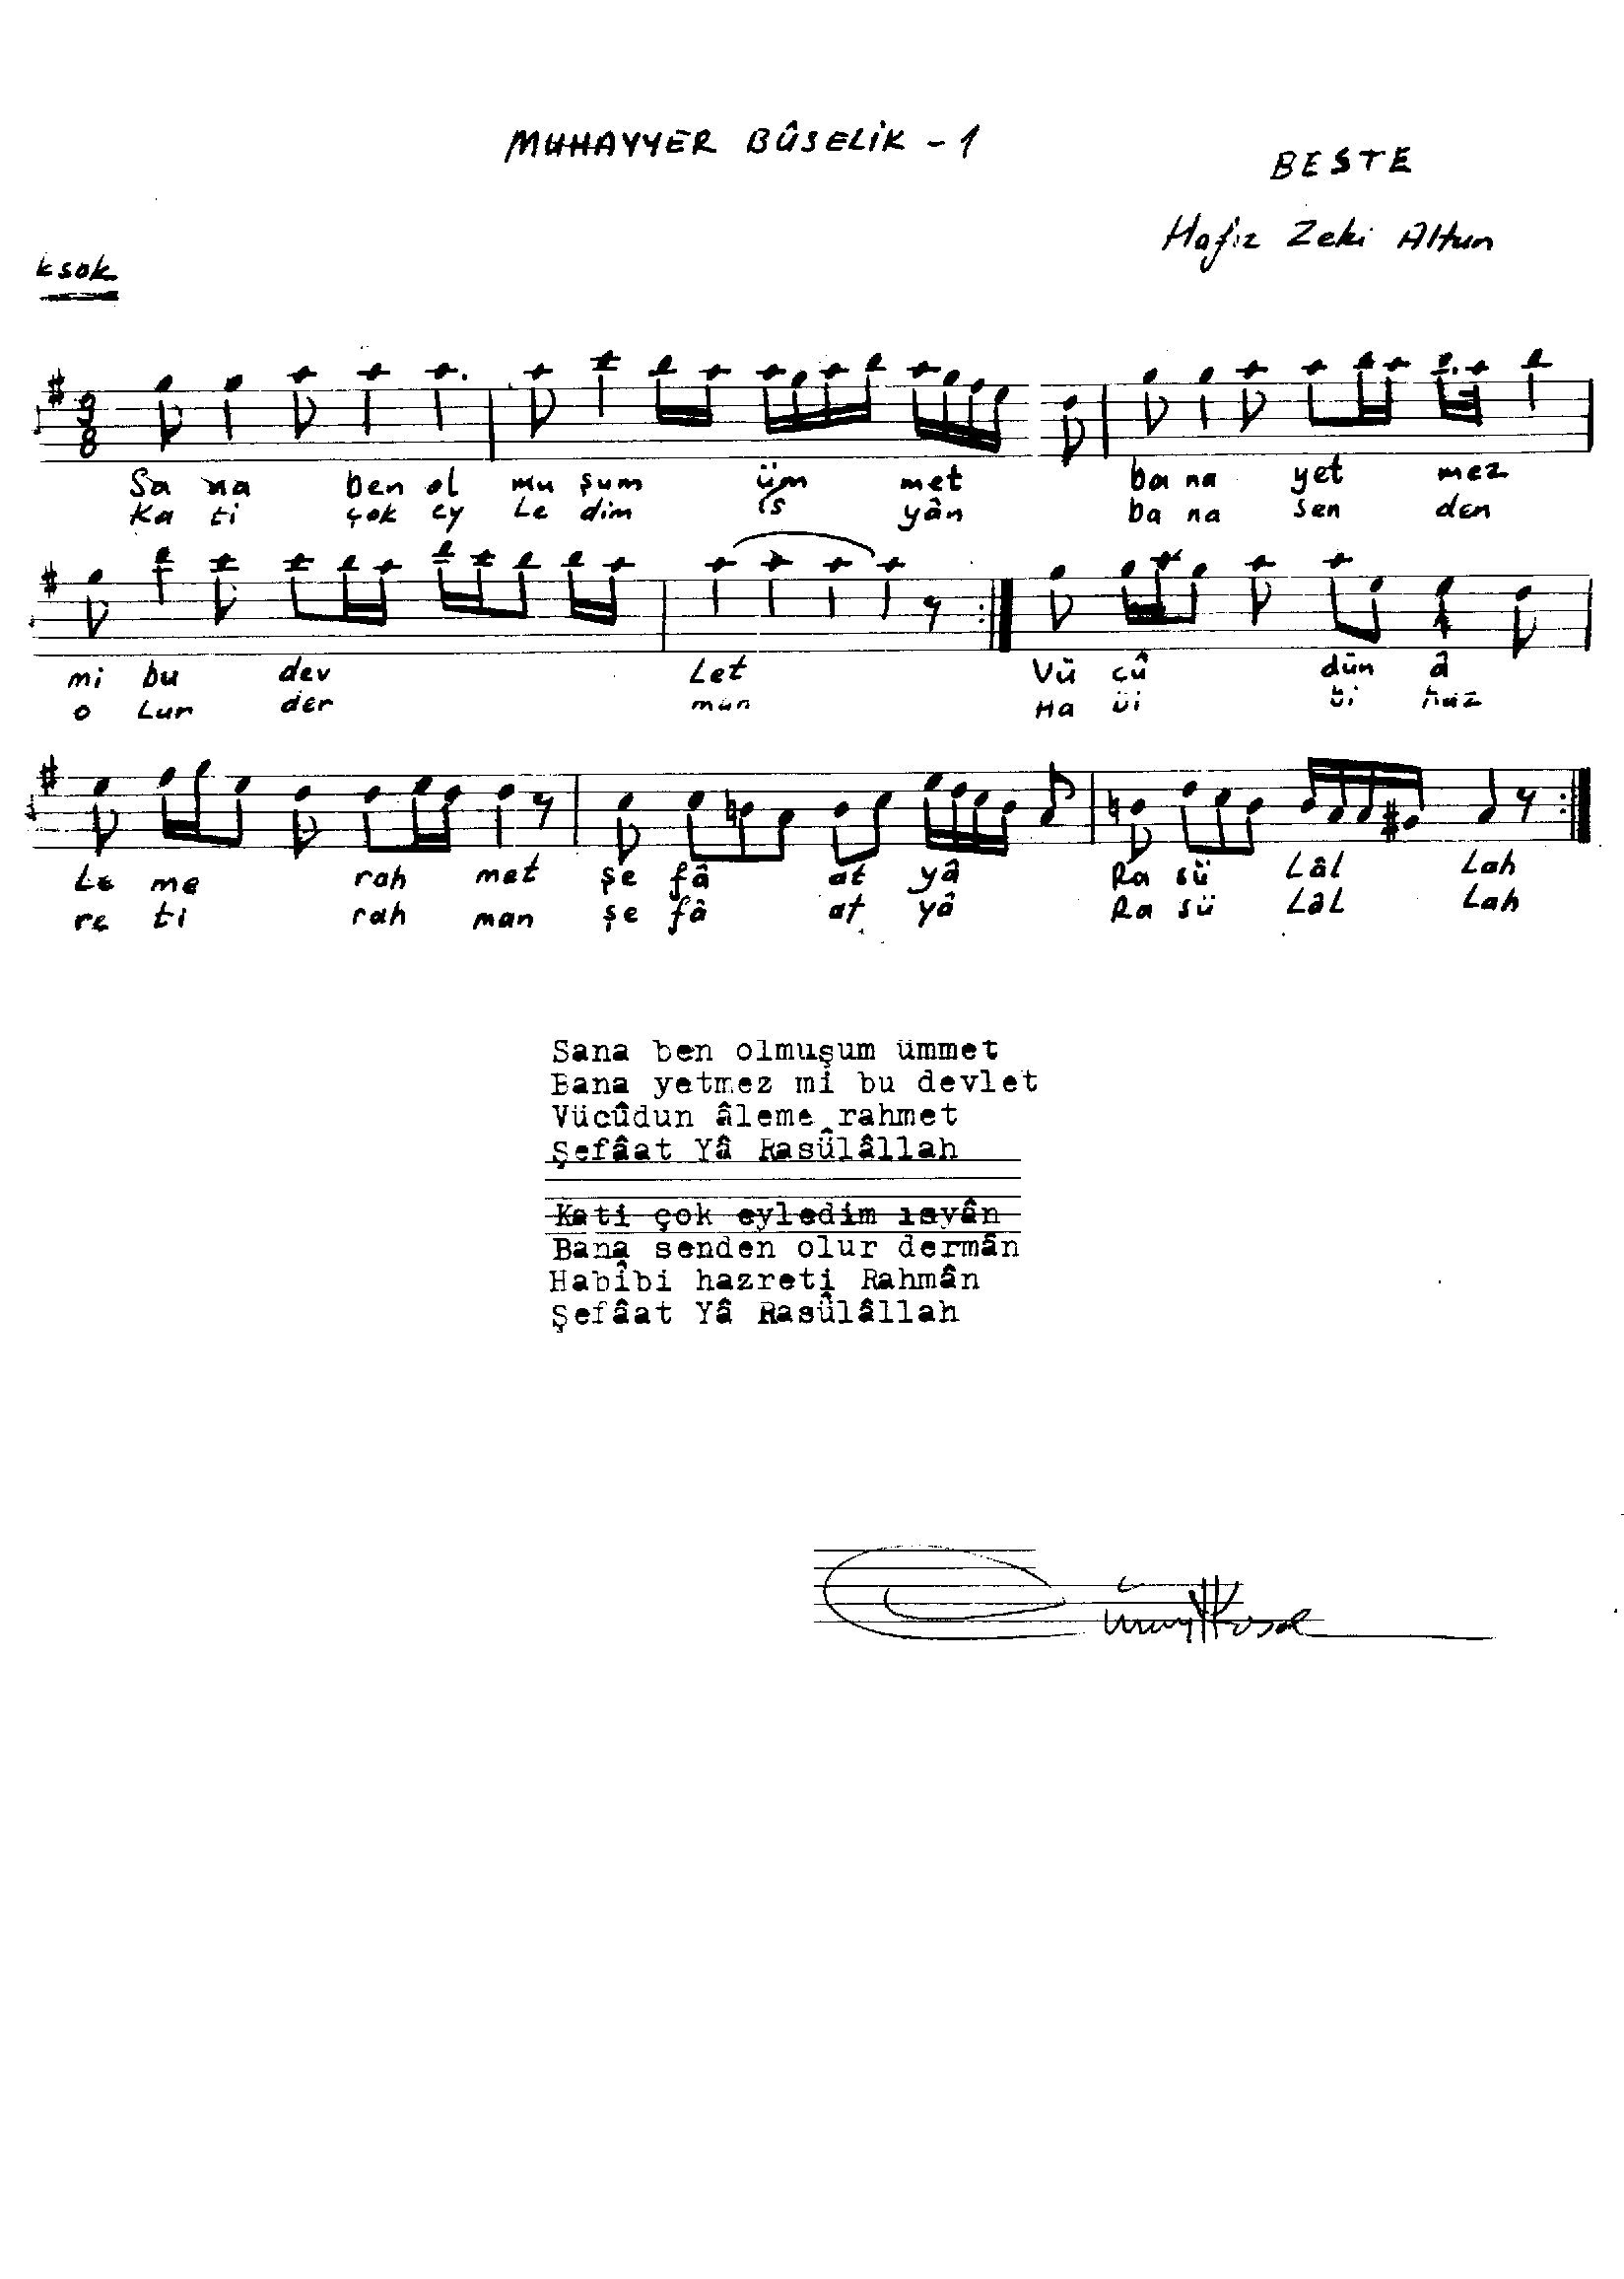 MUHAYYER BÛSELİK - 1
BESTE
Hafız Zeki Altun
9
8
Sa na ben ol mu şum üm met ba na yet mez
Ka ti çok ey Le dim is yân ba na sen den
mi bu dev Let Vü cû dün â
o Lur der man Ha bi bi haz
Le me rah met şe fâ at yâ Ra sü Lâl Lah
re ti rah man şe fâ at yâ Ra sü Lâl Lah
Sana ben olmuşum ümmet
Bana yetmez mi bu devlet
Vücûdun âleme rahmet
Şefâat Yâ Rasûlâllah
Kati çok eyledim ısyân
Bana senden olur dermân
Habîbi hazreti Rahmân
Şefâat Yâ Rasûlâllah